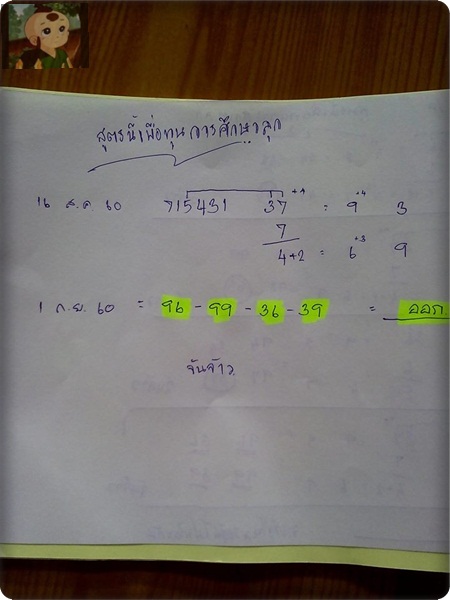 สูตรนี้เพื่อทุนการศึกษาลูก
16 ส.ค 60 715431 37 +4 = 9 +4 3
7
4+2 = 6 +3 9
1 ก.ย. 60 = 96 - 99 - 36 - 39 = ออก
จันจ้าว